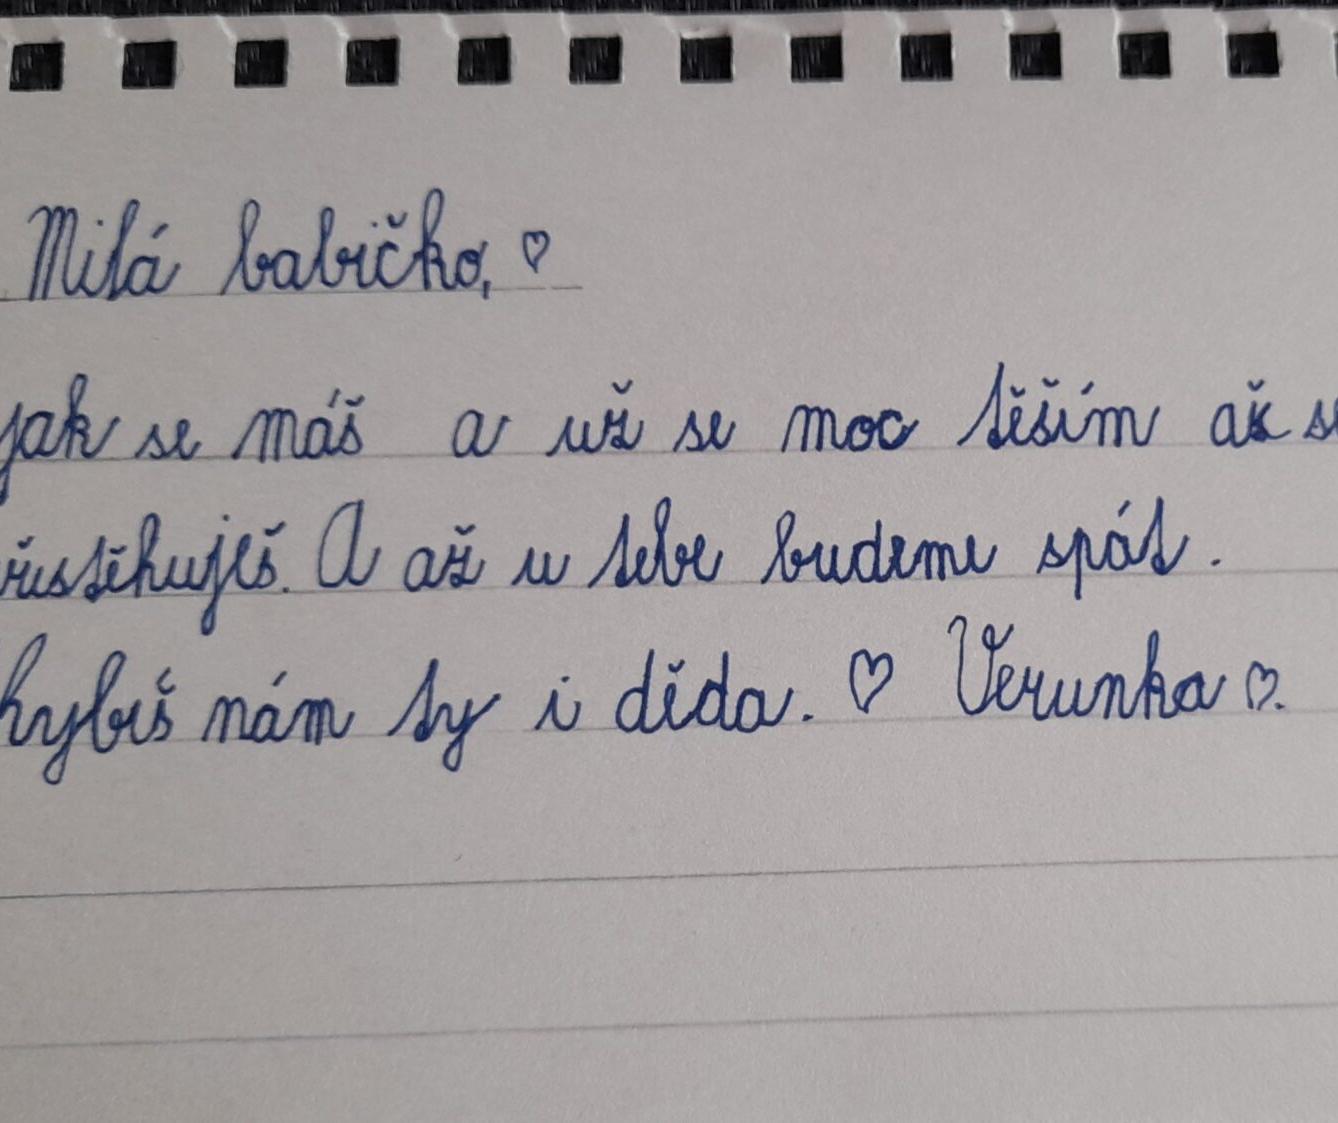 Milá babičko, ♡
jak se máš a už se moc těším až se
řistěhuješ. A až u tebe budeme spát.
hybiš nám ty i děda. ♡ Verunka ♡.